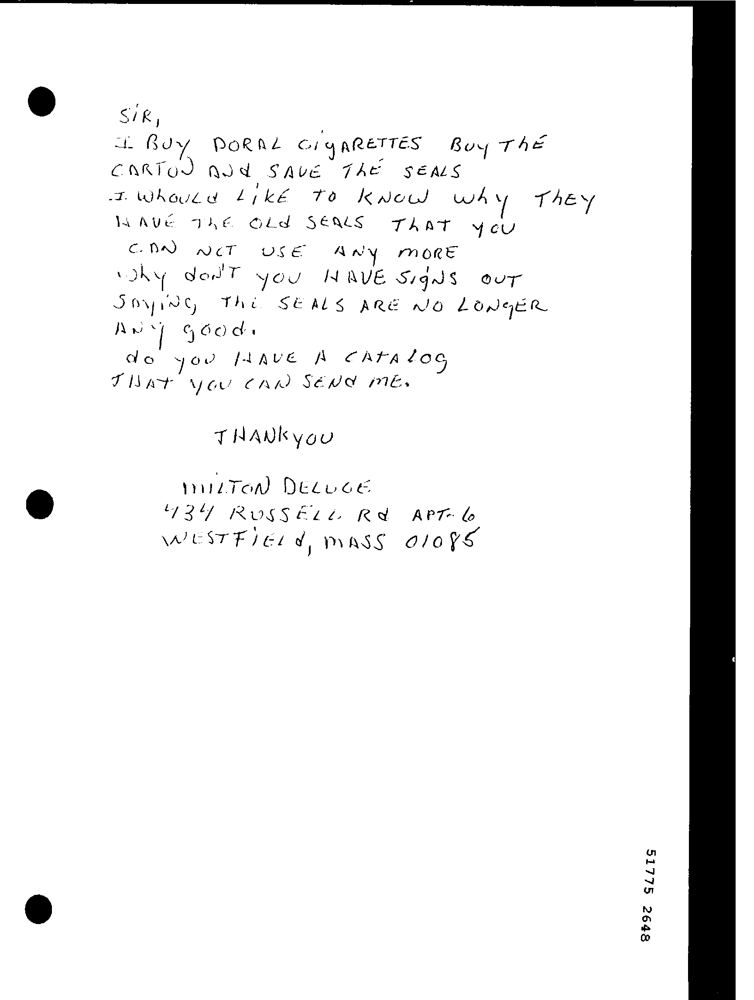 SIR,
I BUY DORAL CIGARETTES BUY THE
CARTON AND SAVE THE SEALS
I WHOULD LIKE TO KNOW WHY THEY
HAVE THE OLD SEALS THAT YOU
CAN NOT USE ANY MORE
WHY DON'T YOU HAVE SIGNS OUT
SAYING THE SEALS ARE NO LONGER
ANY GOOD.
DO YOU HAVE A CATALOG
THAT YOU CAN SEND ME.
THANKYOU
MILTON DELUGE
434 RUSSELL Rd APT-6
WESTFIELD, MASS 01085
51775 2648